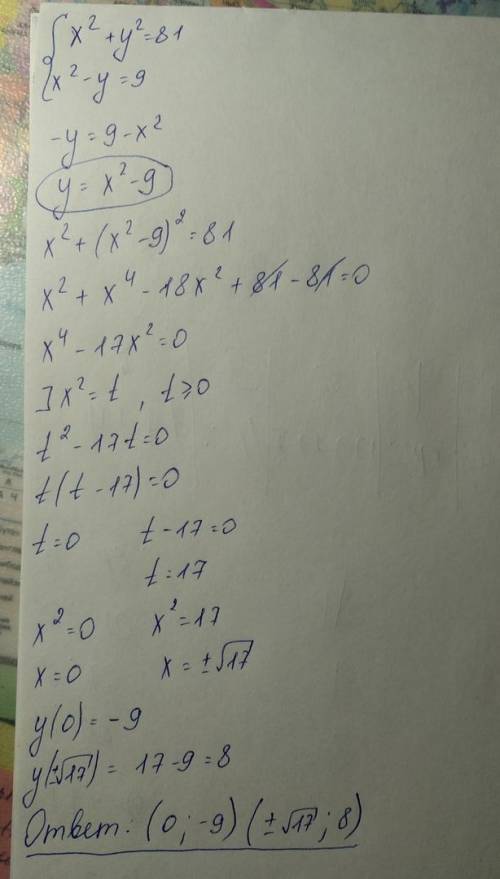 x² + y² = 81
x² - y = 9
-y = 9 - x²
y = x² - 9
x² + (x² - 9)² = 81
x² + x⁴ - 18x² + 81 - 81 = 0
x⁴ - 17x² = 0
] x² = t , t ⩾ 0
t² - 17t = 0
t(t - 17) = 0
t = 0 t - 17 = 0
t = 17
x² = 0 x² = 17
x = 0 x = ±√17
y(0) = -9
y(±√17) = 17 - 9 = 8
Ответ: (0 ; -9) (±√17 ; 8)